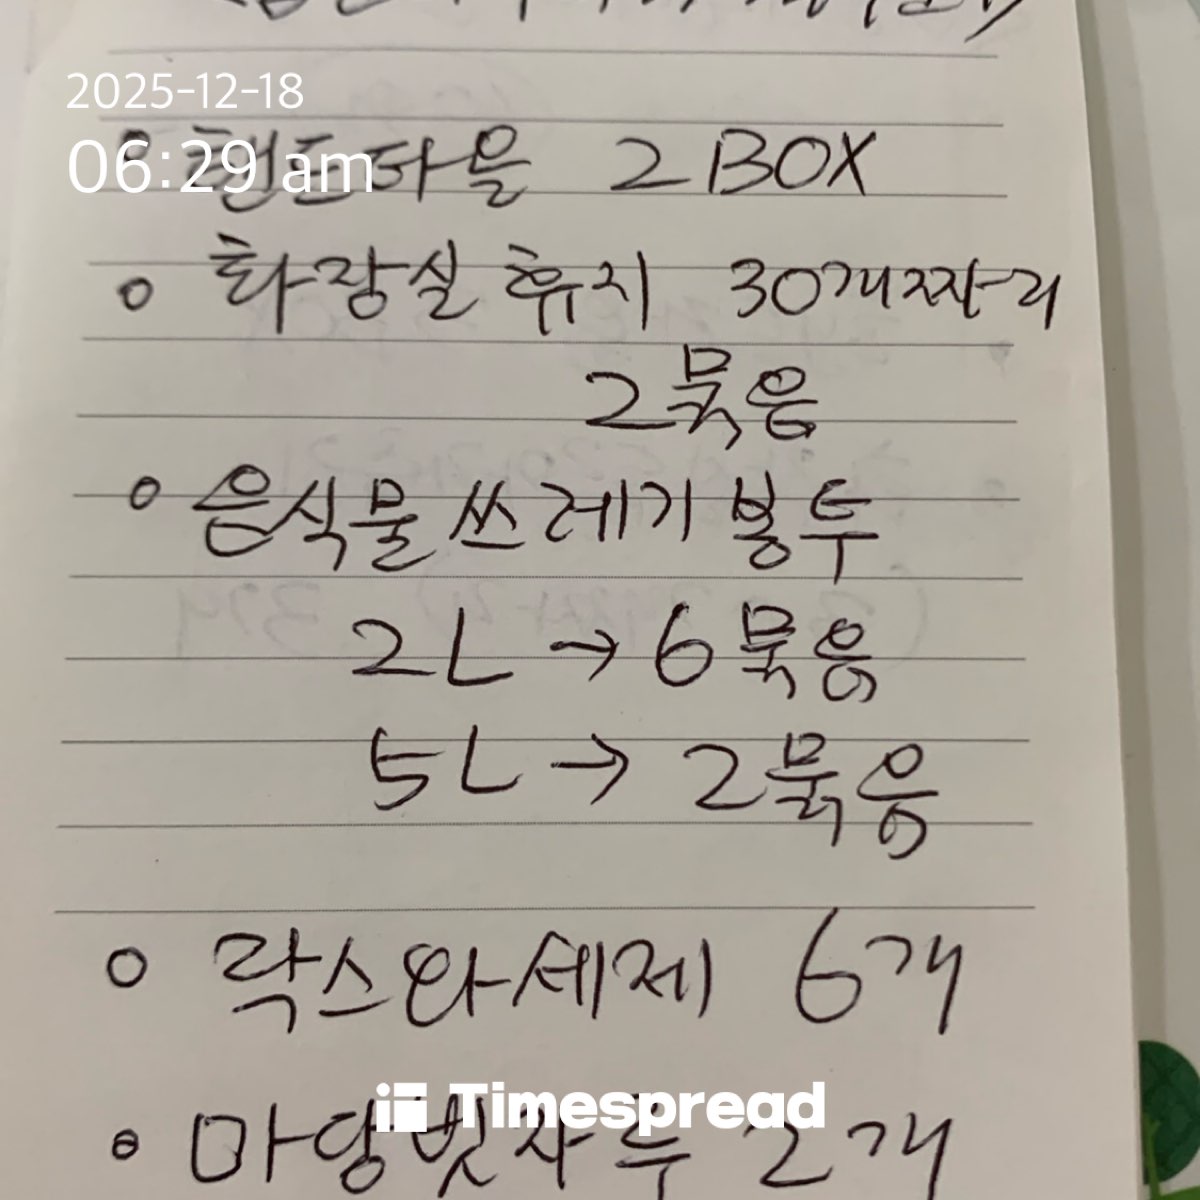 2025-12-18
06:29 am
핸드타올 2 BOX
화장실 휴지 30개짜리
2묶음
음식물 쓰레기 봉투
2L → 6묶음
5L → 2묶음
락스와세제 6개
Timespread
마당빗자루 2개